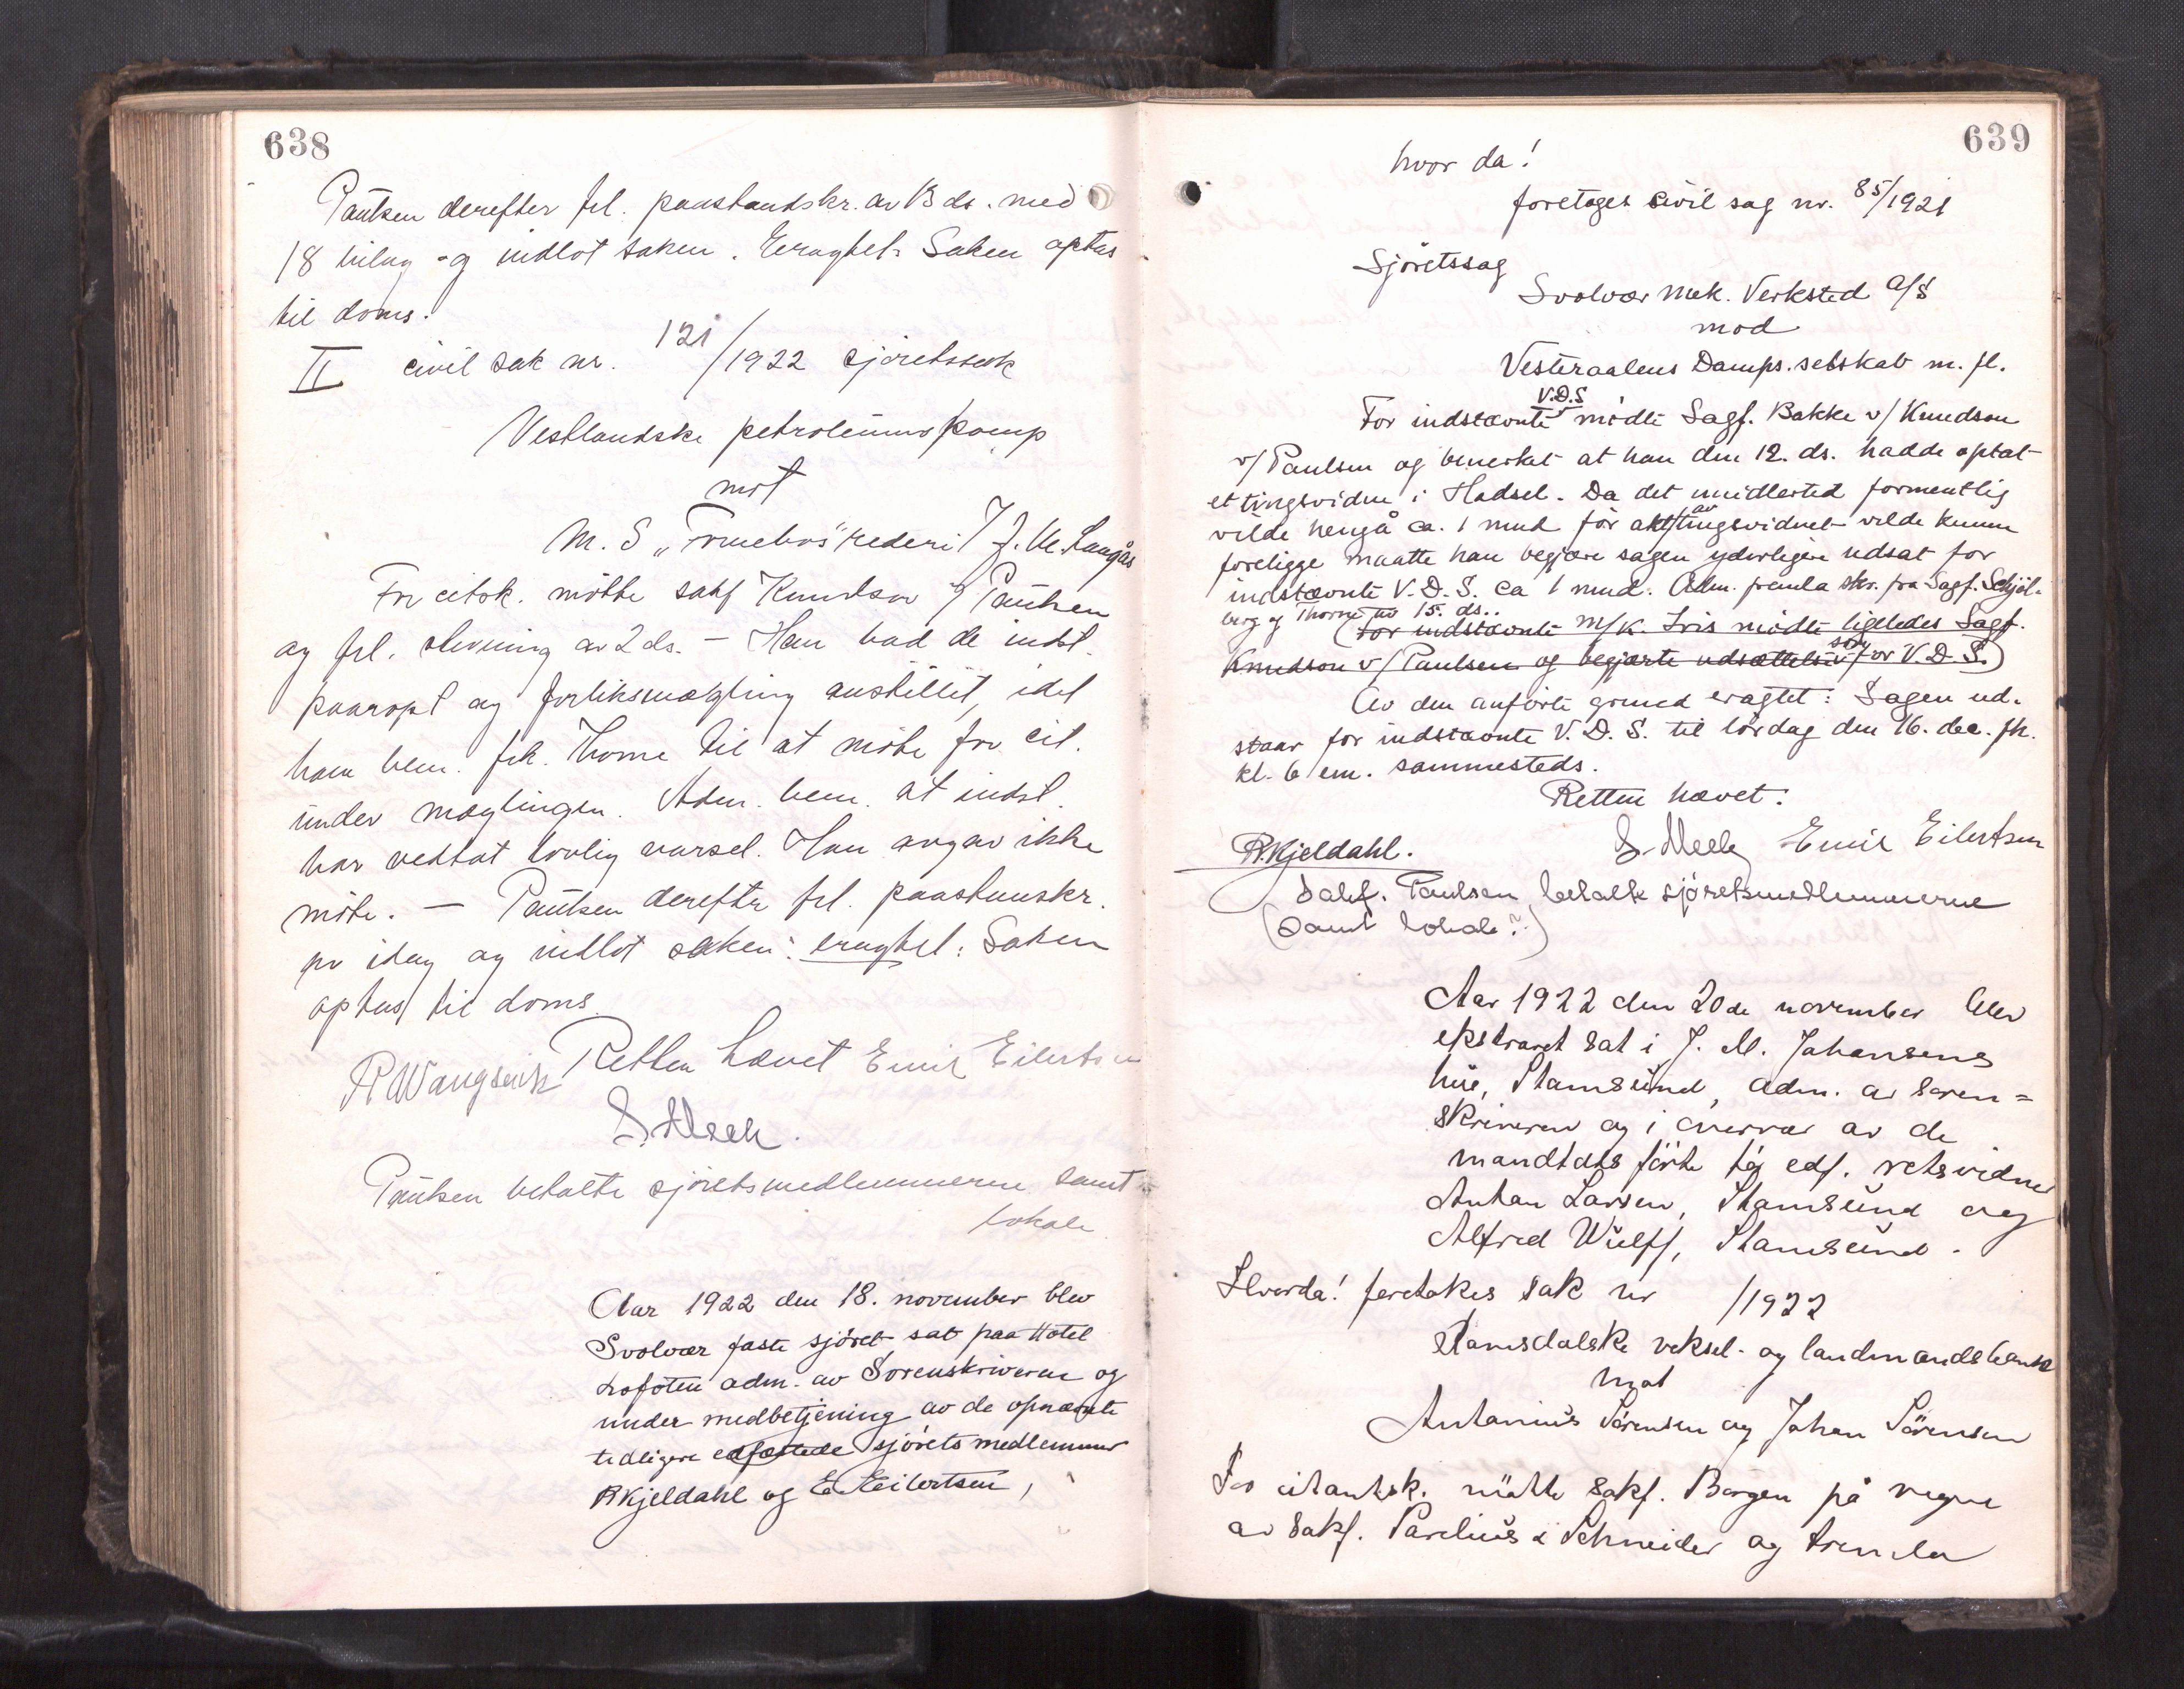 638
Paulsen derefter frl. paastandskr. av 13 ds. med
18 bilag og indlot saken. Eragtet: Saken optas
til doms.
II civil sak nr. 121/1922 sjøretssak
Vestlandske petroleumskomp
mot
M.S „Tornebus" rederi / J. M. Langås
For citsk. mötte sakf Knudsen v/ Paulsen
og frl. stevning av 2 ds. – Han bad de indst.
paaropt og forliksmægling anstillet, idet
han bem. frk. Thorne til at möte for cit.
under mæglingen. Adm. bem. at indst.
har vedtat lovlig varsel. Han avgav ikke
möte. – Paulsen derefter frl. paastandskr.
av idag og indlot saken: eragtet: Saken
optas til doms.
Retten hævet Emil Eilertsen
R Wangsvik
S. Meek.
Paulsen betalte sjöretsmedlemmerne samt
lokale
Aar 1922 den 18. november blev
Svolvær faste sjöret sat paa Hotel
Lofoten adm. av Sorenskriveren og
under medbetjening av de opnævnte
tidligere edfæstede sjörets medlemmer
R Kjeldahl og E Eilertsen,
639
hvor da!
foretages civil sag nr. 85/1921
Sjöretssag
Svolvær Mek. Verksted A/S
mod
Vesteraalens Damps.selskab m. fl.
V.D.S
For indstævnte mödte Sagf. Bakke v/ Knudson
v/ Paulsen og bemerket at han den 12. ds. hadde optat
et tingsvidne i Hadsel. Da det imidlertid formentlig
vilde hengå ca. 1 mnd för akt av tingsvidnet vilde kunne
foreligge maatte han begjære sagen yderligere udsat for
indstævnte V.D.S. ca 1 mnd. Adm. fremla skr. fra Sagf. Schjöl-
berg og Thorne av 15. ds..
(For indstævnte M/K. Iris mödte ligeledes Sagf.
Knudson v/ Paulsen og begjærte udsættelse som for V.D.S.)
Av den anförte grund eragtet: Sagen ud-
staar for indstævnte V.D.S. til lördag den 16. dec. fh.
kl. 6 em. sammesteds.
Retten hævet:
R. Kjeldahl. S. Meek Emil Eilertsen
Sakf. Paulsen betalte sjöretsmedlemmerne
(samt lokale?)
Aar 1922 den 20de november blev
ekstraret sat i J. M. Johansens
hus, Stamsund, adm. av soren=
skriveren og i overvær av de
mandtals förte og edf. retsvidner
Anton Larsen, Stamsund og
Alfred Wulff, Stamsund.
Hvorda! foretokes sak nr /1922
Romsdalske veksel- og landmandsbank
mot
Antonius Sörensen og Johan Sörensen
For citantsk. mötte sakf. Borgen på vegne
av sakf. Parelius & Schneider og fremla